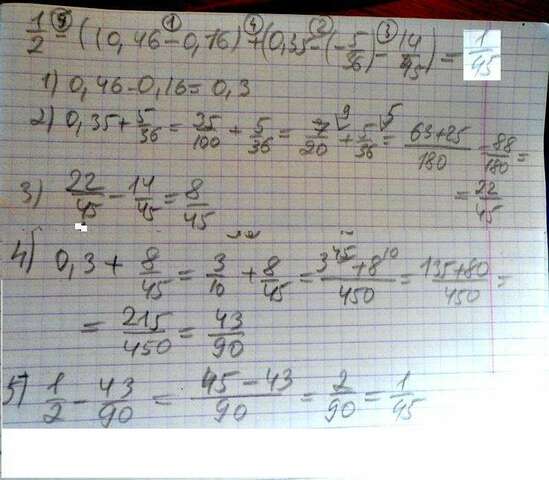 1/2 - ((0,46 - 0,16) + (0,35 - (-5/36) - 14/45) = 1/45
1) 0,46 - 0,16 = 0,3
2) 0,35 + 5/36 = 35/100 + 5/36 = 7/20 + 5/36 = (63+25)/180 = 88/180 =
= 22/45
3) 22/45 - 14/45 = 8/45
4) 0,3 + 8/45 = 3/10 + 8/45 = (3^45 + 8^10)/450 = (135+80)/450 =
= 215/450 = 43/90
5) 1/2 - 43/90 = (45-43)/90 = 2/90 = 1/45